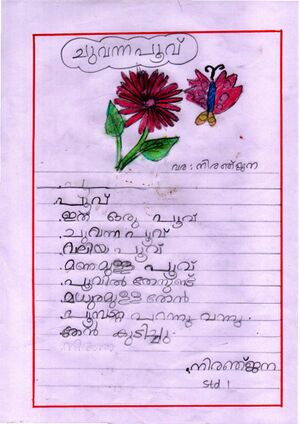 ചുവന്ന പൂവ്
വര : നിരഞ്ജന
പൂവ്
ഇത് ഒരു പൂവ്
ചുവന്ന പൂവ്
വലിയ പൂവ്
മണമുള്ള പൂവ്
പൂവിൽ തേനുണ്ട്
മധുരമുള്ള തേൻ
പൂമ്പാറ്റ പറന്നു വന്നു.
തേൻ കുടിച്ചു.
നിരഞ്ജന
Std 1